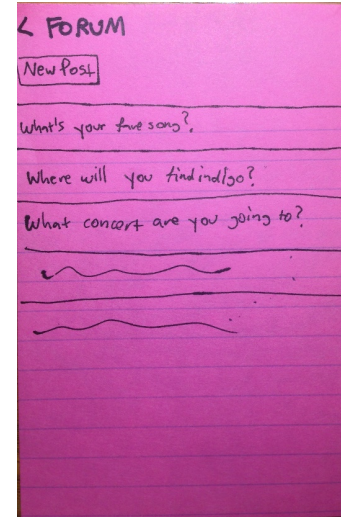 < FORUM
New Post
What's your fave song?
Where will you find indigo?
What concert are you going to?